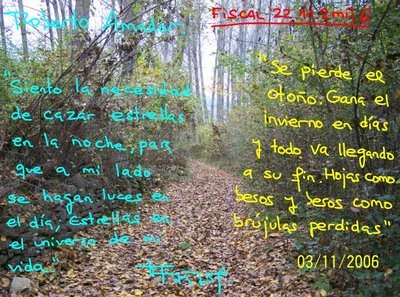 Roberto Amador.
FISCAL 22.11.2006
"Siento la necesidad
de cazar estrellas
en la noche, para
que a mi lado
se hagan luces en
el día, Estrellas en
el universo de mi
vida."
"Se pierde el
otoño. Gana el
invierno en días
y todo va llegando
a su fin. Hojas como
besos y besos como
brújulas perdidas"
03/11/2006